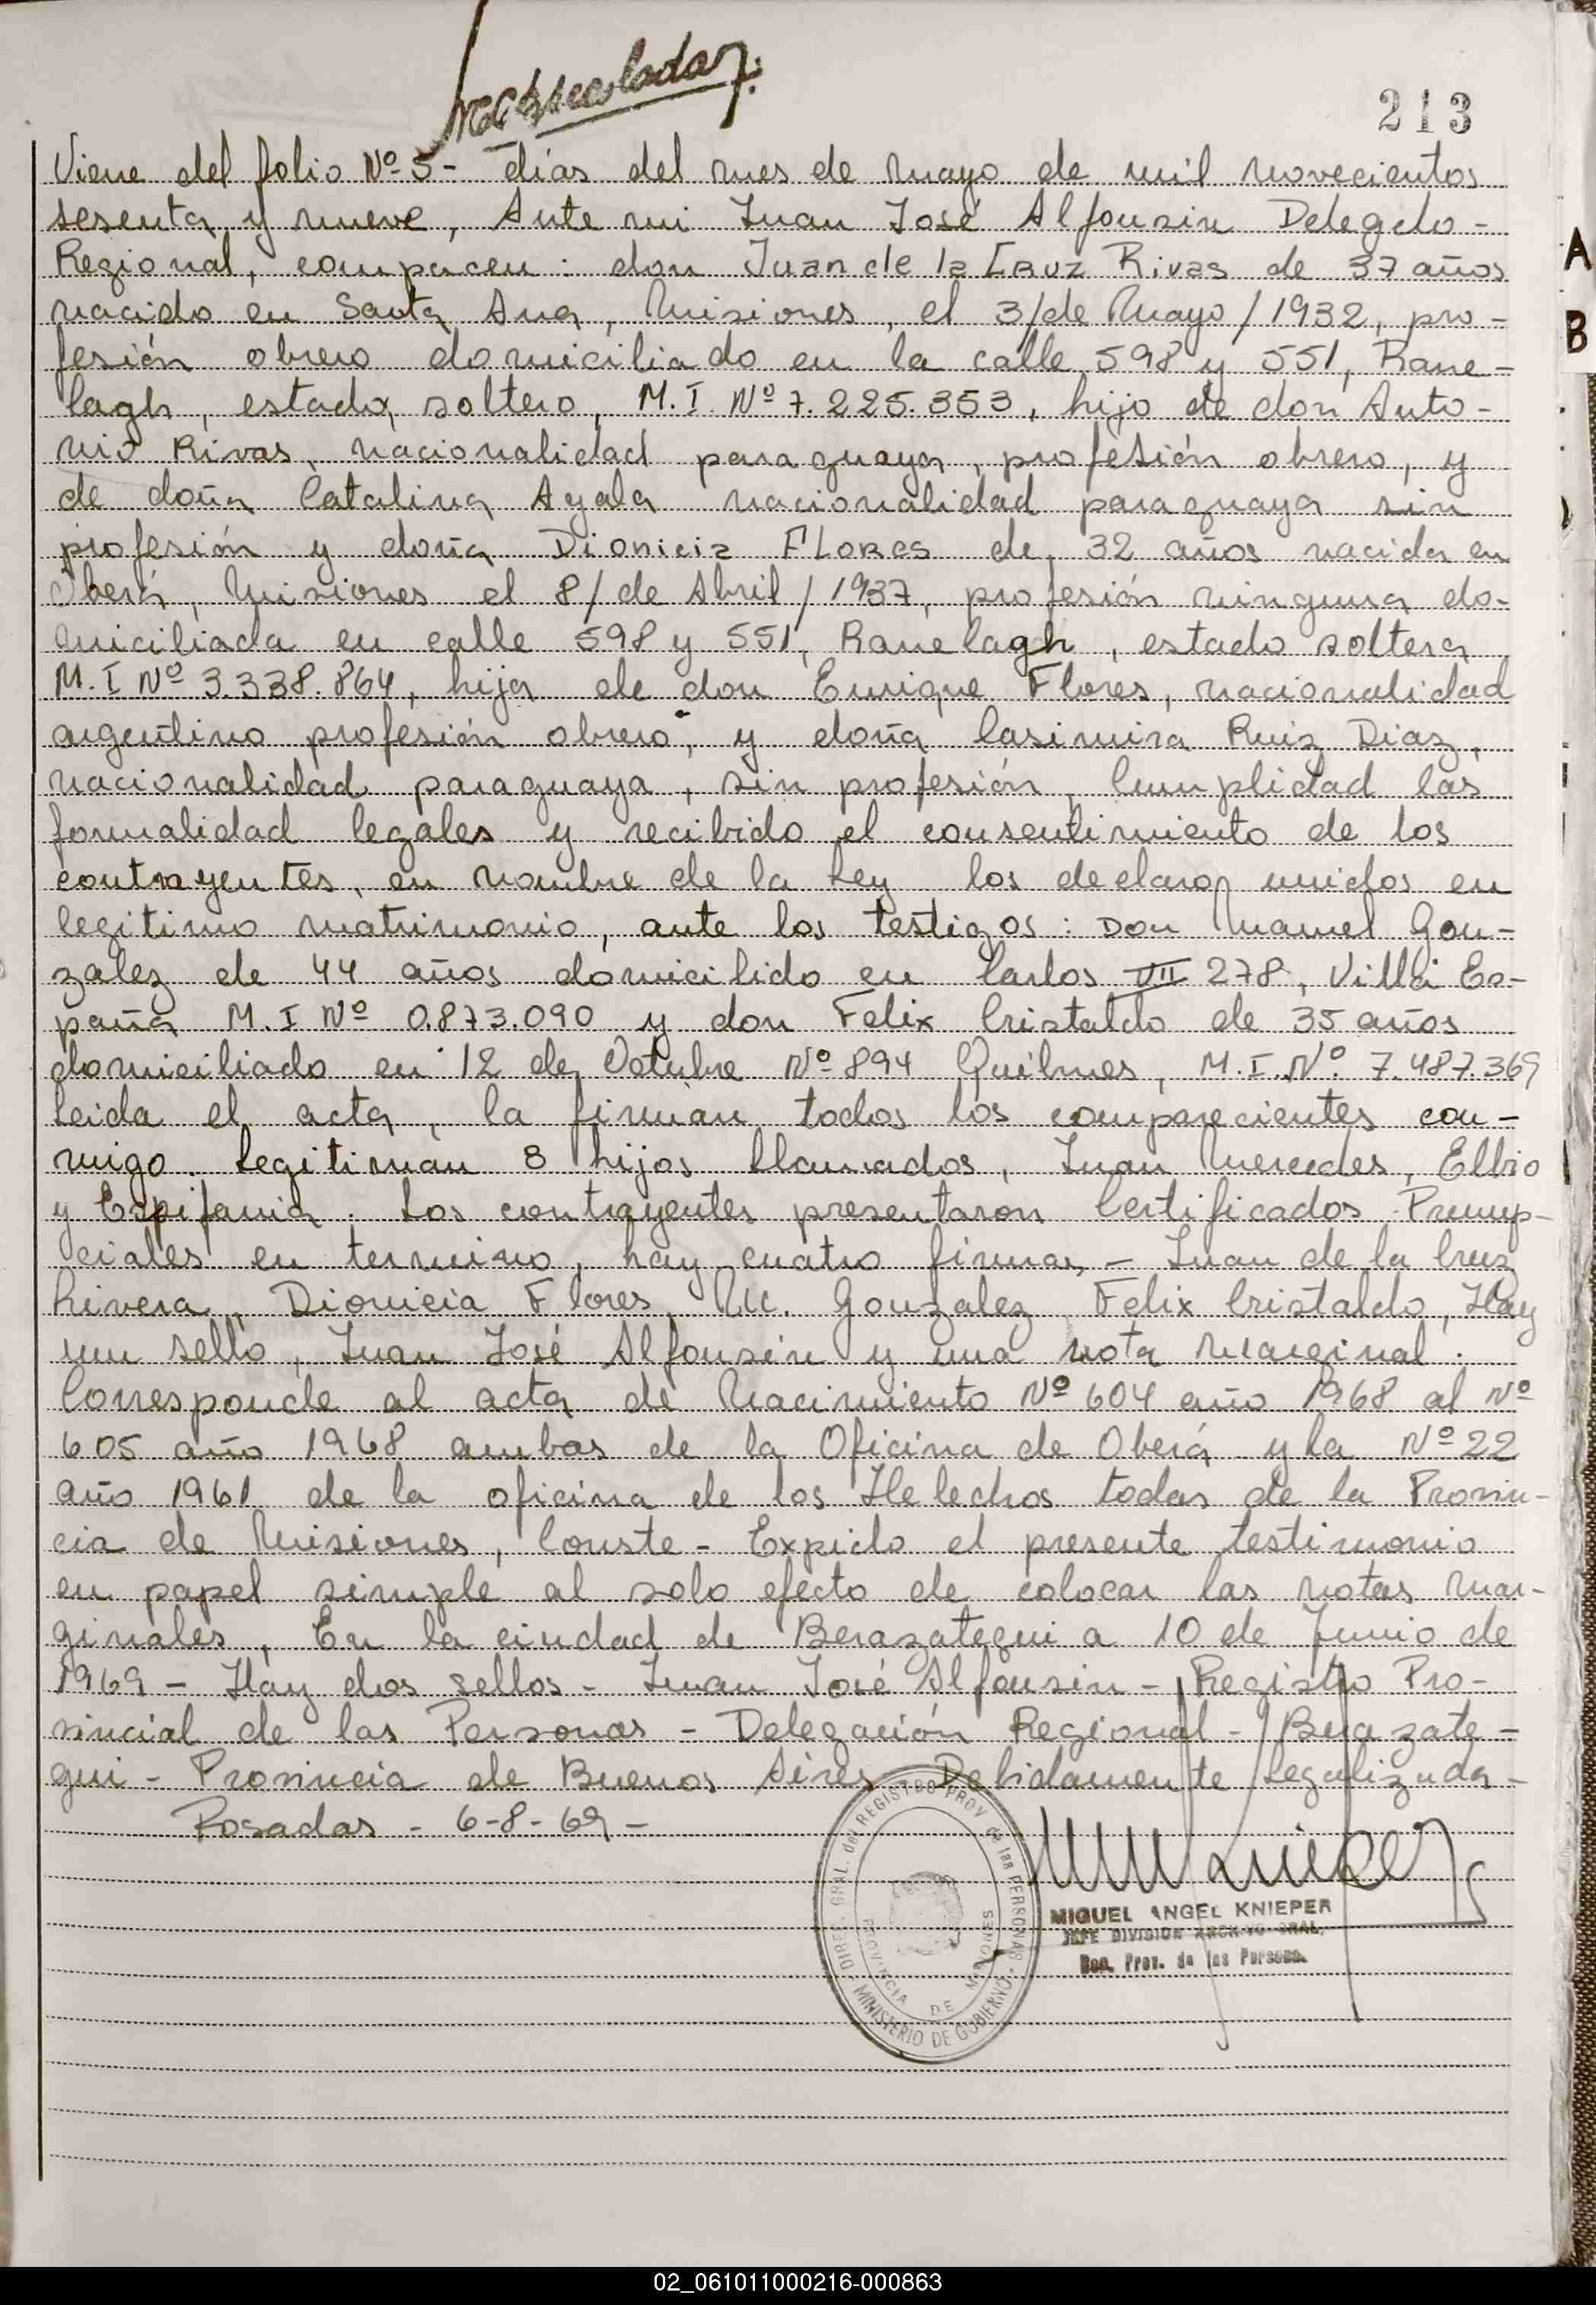 213
Viene del folio Nº 5 - días del mes de Mayo de mil novecientos
sesenta y nueve, Ante mi Juan José Alfonsin Delegdo -
Regional, compacen : don Juan de la Cruz Rivas de 37 años
nacido en Santa Ana, Misiones, el 3/de Mayo/1932, pro -
fesión obrero domiciliado en la calle 598 y 551, Rane -
lagh, estado soltero, M.I. Nº 7.225.353, hijo de don Anto -
nio Rivas, nacionalidad paraguaya, profesión obrero, y
de doña Catalina Ayala nacionalidad paraguaya sin
profesión y doña Dionicia FLORES de 32 años nacida en
Oberá, Misiones el 8/de Abril/1937, profesión ninguna do-
miciliada en calle 598 y 551, Ranelagh, estado soltera
M.I Nº 3.338.864, hija de don Enrique Flores, nacionalidad
argentino profesión obrero, y doña Casimira Ruiz Diaz,
nacionalidad paraguaya, sin profesión, Cumplidad las
formalidad legales y recibido el consentimiento de los
contrayentes, en nombre de la Ley los declaro unidos en
legitimo matrimonio, ante los testigos : Don Manuel Gon -
zalez de 44 años domicilido en Carlos VII 278, Villa Es-
paña M.I Nº 0.873.090 y don Felix Cristaldo de 35 años
domiciliado en 12 de Octubre Nº 894 Quilmes, M.I.Nº 7.487.369
Leida el acta, la firman todos los comparecientes con -
migo. Legitiman 3 hijos llamados, Juan Mercedes, Elbio
y Espifania. Los contrayentes presentaron Certificados Prenup-
ciales en termino, hay cuatro firmas - Juan de la Cruz
Rivera, Dionicia Flores, M. Gonzalez, Felix Cristaldo, Hay
un sello, Juan José Alfonsin y una nota marginal.
Corresponde al acta de Nacimiento Nº 604 año 1968 al Nº
605 año 1968 ambas de la Oficina de Oberá y la Nº 22
año 1961 de la oficina de los Helechos todas de la Provin-
cia de Misiones, Conste - Expido el presente testimonio
en papel simple al solo efecto de colocar las notas mar-
ginales, En la ciudad de Berazategui a 10 de Junio de
1969 - Hay dos sellos - Juan José Alfonsin - Registro Pro-
vincial de las Personas - Delegación Regional - Berazate -
gui - Provincia de Buenos Aires - Debidamente Legalizada -
Posadas - 6-8-69 -
DIREC. GRAL. del REGISTRO PROV. de las PERSONAS
PROVINCIA DE MISIONES
MINISTERIO DE GOBIERNO
MIGUEL ANGEL KNIEPER
JEFE DIVISION ARCHIVO GRAL.
Reg. Prov. de las Personas
A
B
02_061011000216-000863